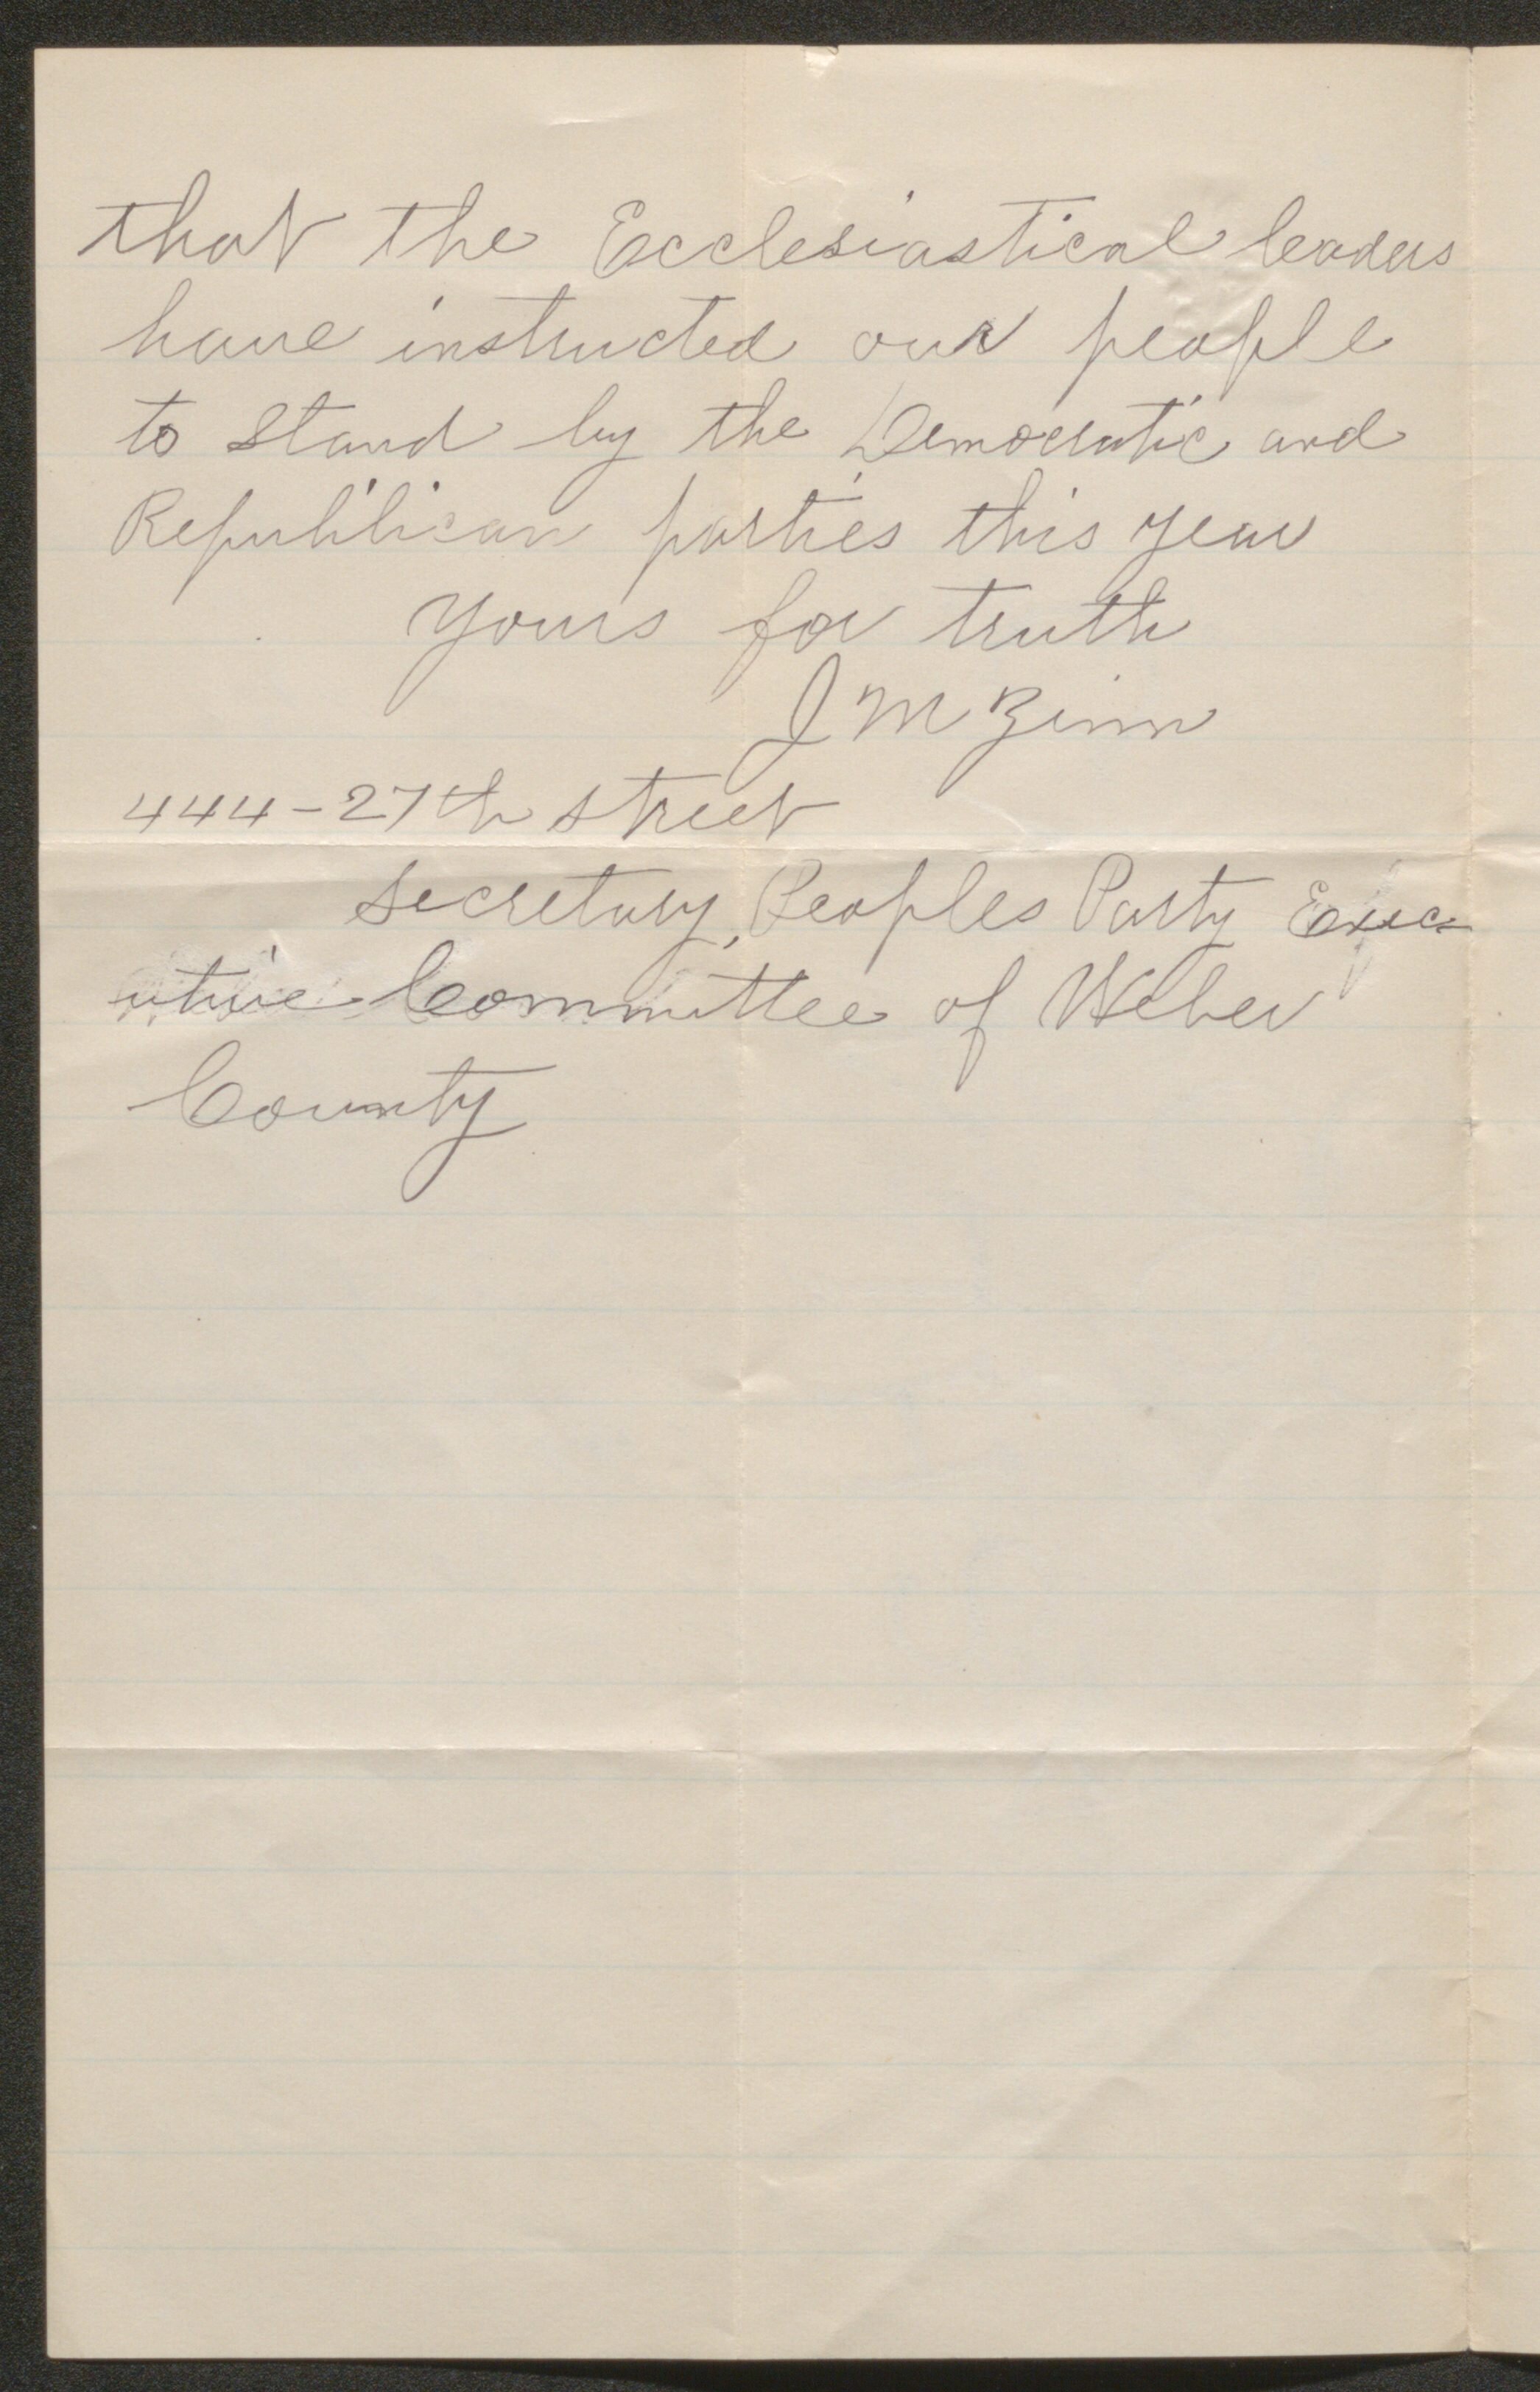 that the Ecclesiastical leaders
have instructed our people
to stand by the Democratic and
Republican parties this year
Yours for truth
J M Zinn
444-27th street
Secretary, Peoples Party Exec
utive Committee of Weber
County